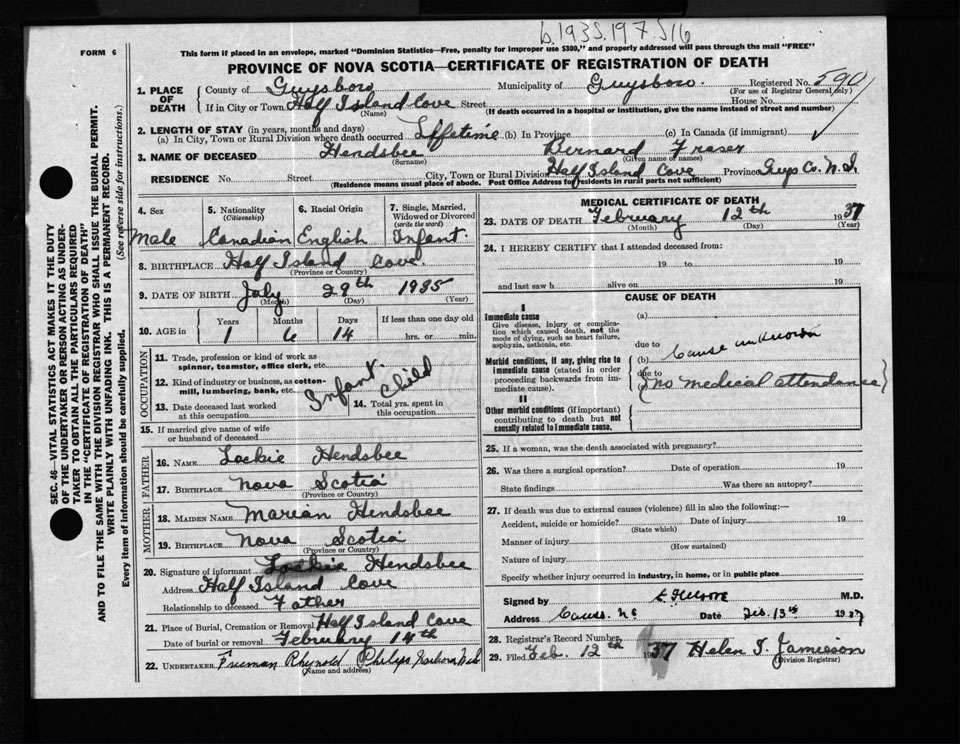 b. 1935.197516
FORM 6
This form if placed in an envelope, marked "Dominion Statistics—Free, penalty for improper use $300," and properly addressed will pass through the mail "FREE"
PROVINCE OF NOVA SCOTIA—CERTIFICATE OF REGISTRATION OF DEATH
SEC. 46—VITAL STATISTICS ACT MAKES IT THE DUTY
OF THE UNDERTAKER OR PERSON ACTING AS UNDER-
TAKER TO OBTAIN ALL THE PARTICULARS REQUIRED
IN THE "CERTIFICATE OF REGISTRATION OF DEATH"
AND TO FILE THE SAME WITH THE DIVISION REGISTRAR WHO SHALL ISSUE THE BURIAL PERMIT.
WRITE PLAINLY WITH UNFADING INK. THIS IS A PERMANENT RECORD.
Every item of information should be carefully supplied. (See reverse side for instructions.)
1. PLACE OF DEATH County of Guysboro Municipality of Guysboro. Registered No. 590
(For use of Registrar General only)
If in City or Town Half Island Cove Street House No.
(Name) (If death occurred in a hospital or institution, give the name instead of street and number)
2. LENGTH OF STAY (in years, months and days)
(a) In City, Town or Rural Division where death occurred Lifetime (b) In Province (c) In Canada (if immigrant)
3. NAME OF DECEASED Hendsbee Bernard Fraser
(Surname) (Given name or names)
RESIDENCE No. Street City, Town or Rural Division Half Island Cove Province Guys Co. N.S.
(Residence means usual place of abode. Post Office Address for residents in rural parts not sufficient)
4. Sex 5. Nationality (Citizenship) 6. Racial Origin 7. Single, Married, Widowed or Divorced (write the word)
Male Canadian English Infant
8. BIRTHPLACE Half Island Cove.
(Province or Country)
9. DATE OF BIRTH July 29th 1935
(Month) (Day) (Year)
10. AGE in Years Months Days If less than one day old
1 6 14 hrs. or min.
OCCUPATION
11. Trade, profession or kind of work as
spinner, teamster, office clerk, etc.
12. Kind of industry or business, as cotton-
mill, lumbering, bank, etc.
Infant. Child
13. Date deceased last worked
at this occupation
14. Total yrs. spent in
this occupation
15. If married give name of wife
or husband of deceased
FATHER
16. NAME Lockie Hendsbee
17. BIRTHPLACE Nova Scotia
(Province or Country)
MOTHER
18. MAIDEN NAME Marian Hendsbee
19. BIRTHPLACE Nova Scotia
(Province or Country)
20. Signature of informant Lockie Hendsbee
Address Half Island Cove
Relationship to deceased Father
21. Place of Burial, Cremation or Removal Half Island Cove
Date of burial or removal February 14th
22. UNDERTAKER Freeman Rhynold Philips
(Name and address)
MEDICAL CERTIFICATE OF DEATH
23. DATE OF DEATH February 12th 1937
(Month) (Day) (Year)
24. I HEREBY CERTIFY that I attended deceased from:
19 to 19
and last saw h alive on 19
CAUSE OF DEATH
I
Immediate cause
Give disease, injury or complica-
tion which caused death, not the
mode of dying, such as heart failure,
asphyxia, asthenia, etc.
(a)
due to
Morbid conditions, if any, giving rise to
immediate cause (stated in order
proceeding backwards from im-
mediate cause).
(b) Cause unknown
due to
(no medical attendance)
II
Other morbid conditions (if important)
contributing to death but not
causally related to immediate cause.
25. If a woman, was the death associated with pregnancy?
26. Was there a surgical operation? Date of operation 19
State findings Was there an autopsy?
27. If death was due to external causes (violence) fill in also the following:—
Accident, suicide or homicide? Date of injury 19
(State which)
Manner of injury
(How sustained)
Nature of injury
Specify whether injury occurred in industry, in home, or in public place
Signed by Moore M.D.
Address Canso. N S Date Feb. 13th 1937
28. Registrar's Record Number
29. Filed Feb. 12th 1937 Helen T. Jamieson
(Division Registrar)